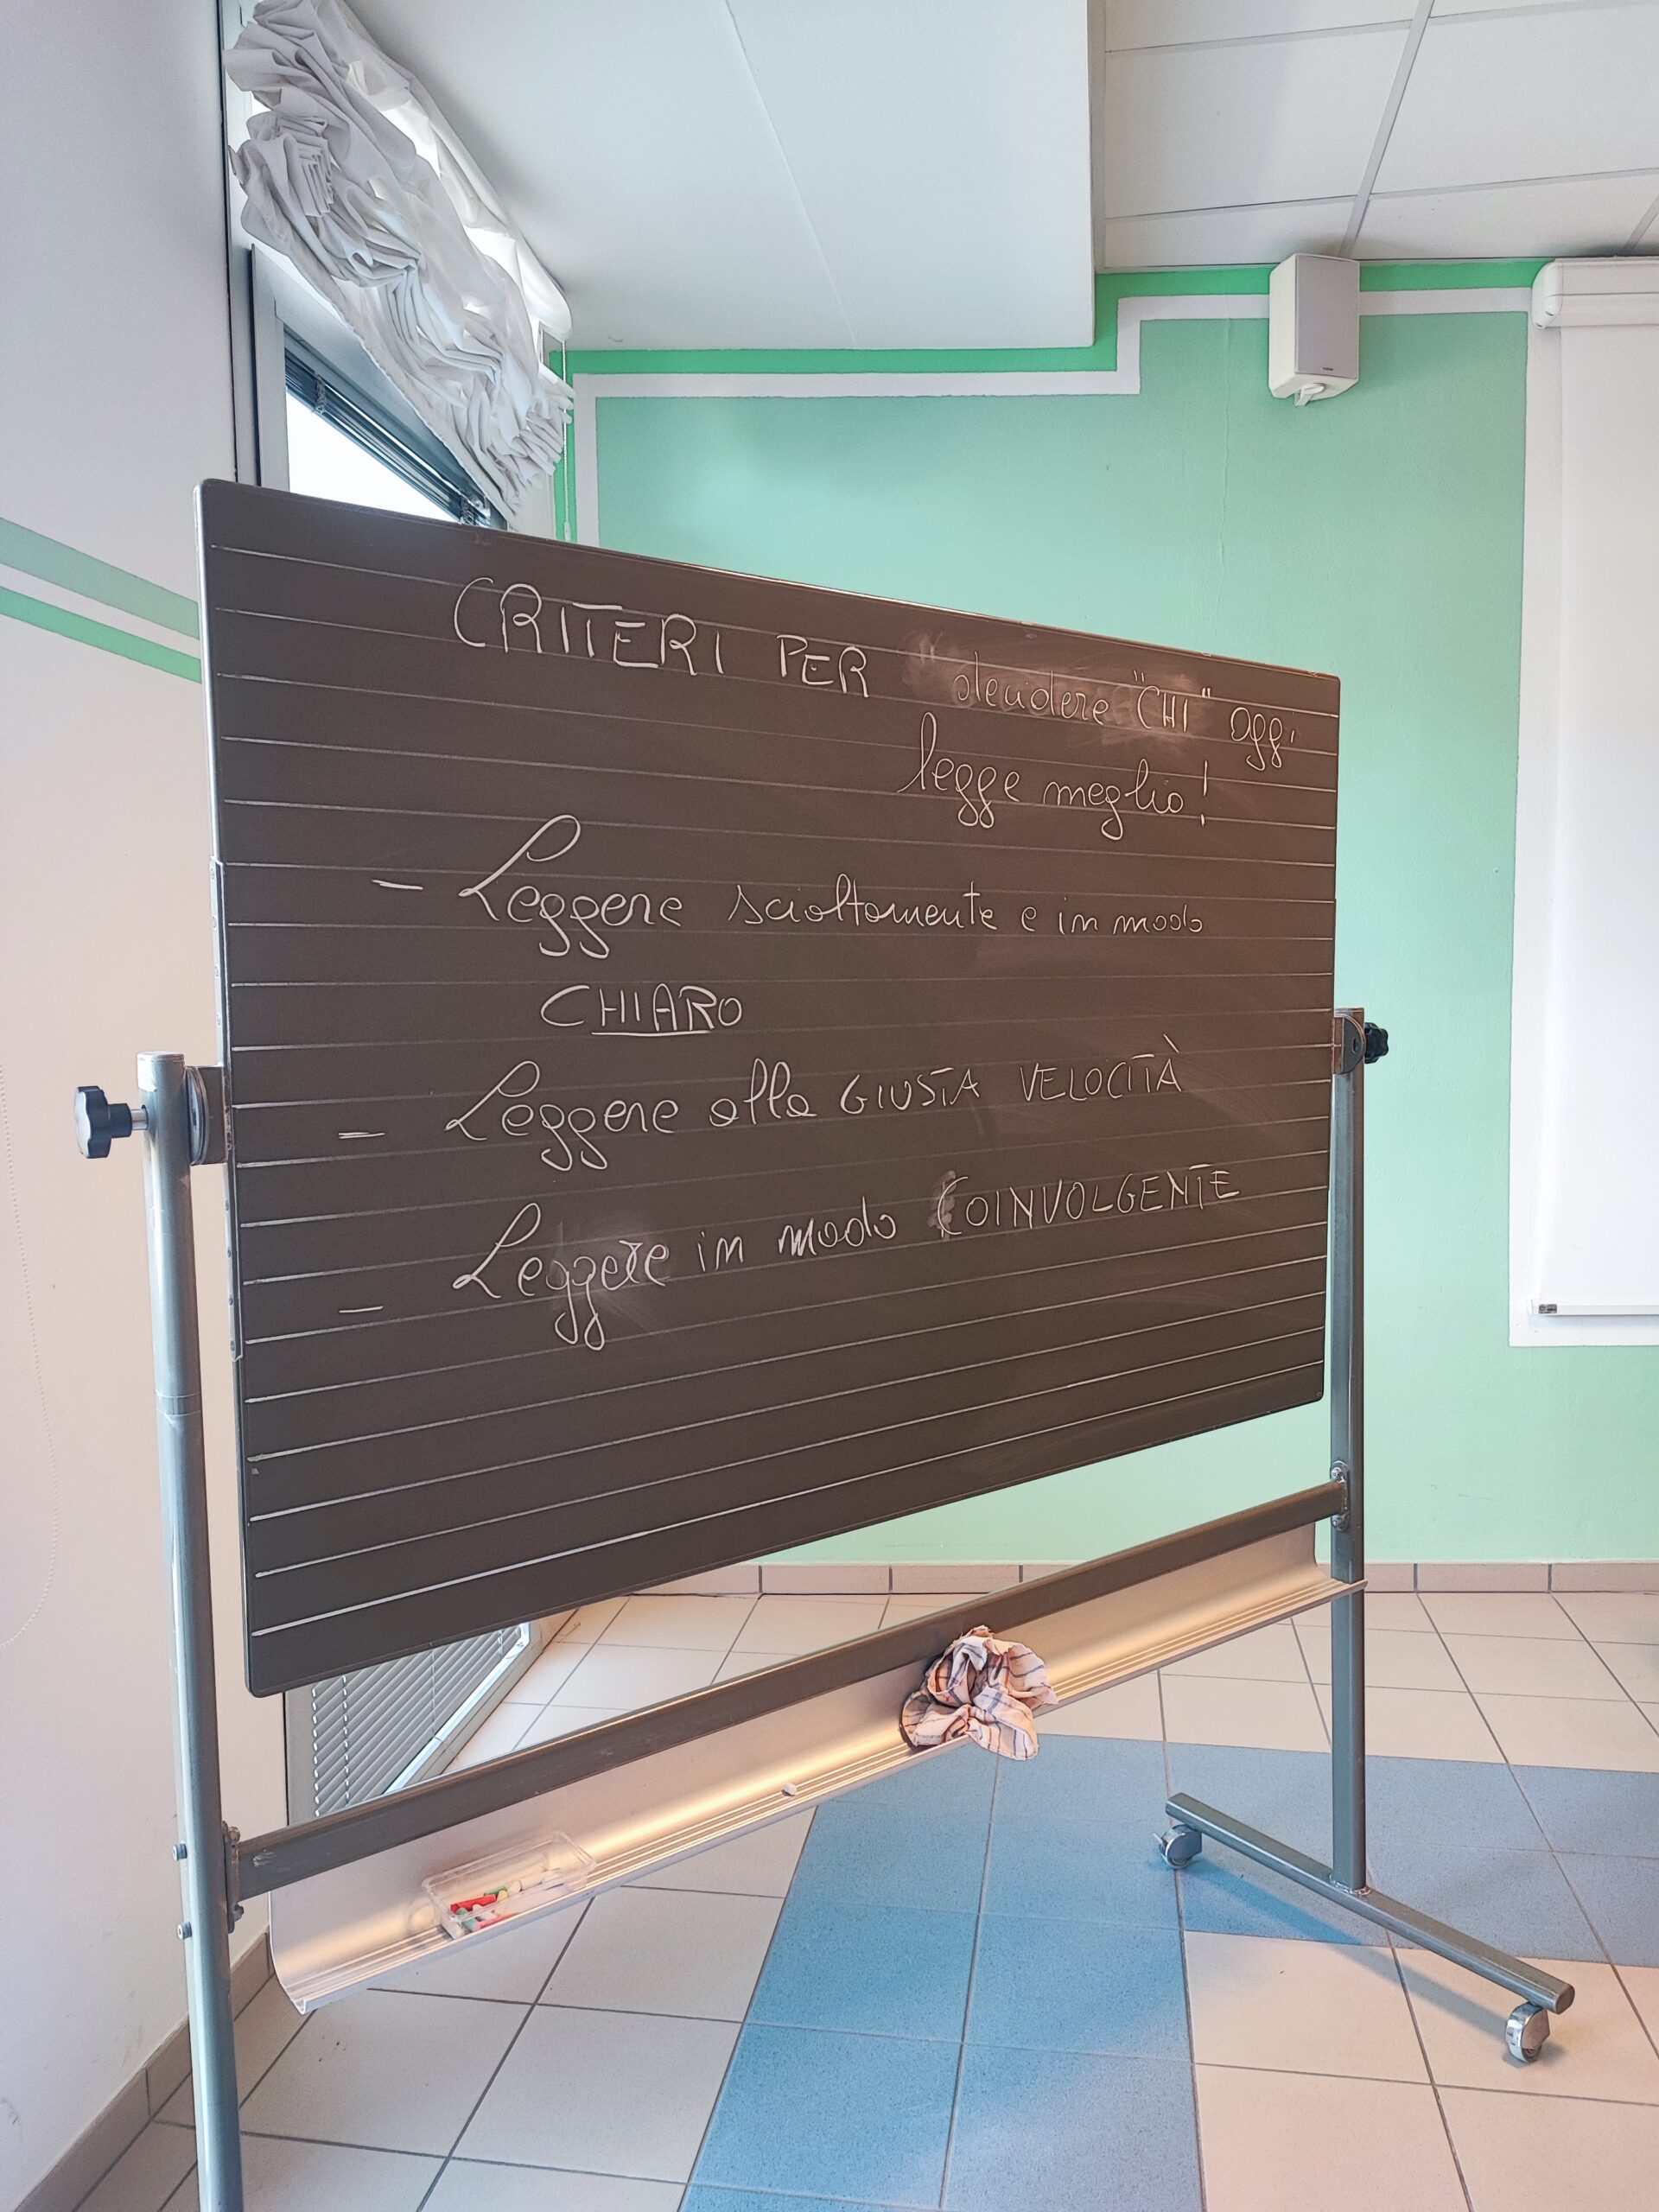 CRITERI PER " decidere "CHI" oggi
legge meglio!
- Leggere scioltamente e in modo
CHIARO
- Leggere alla GIUSTA VELOCITÀ
- Leggere in modo COINVOLGENTE